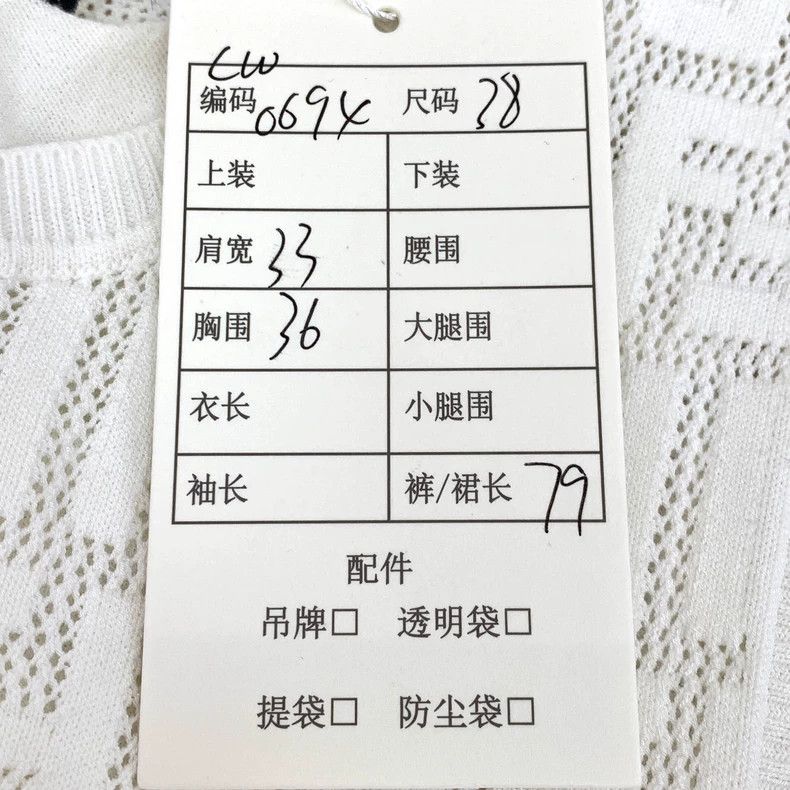 CW
编码 0694 尺码 38
上装 下装
肩宽 33 腰围
胸围 36 大腿围
衣长 小腿围
袖长 裤/裙长 79
配件
吊牌□ 透明袋□
提袋□ 防尘袋□